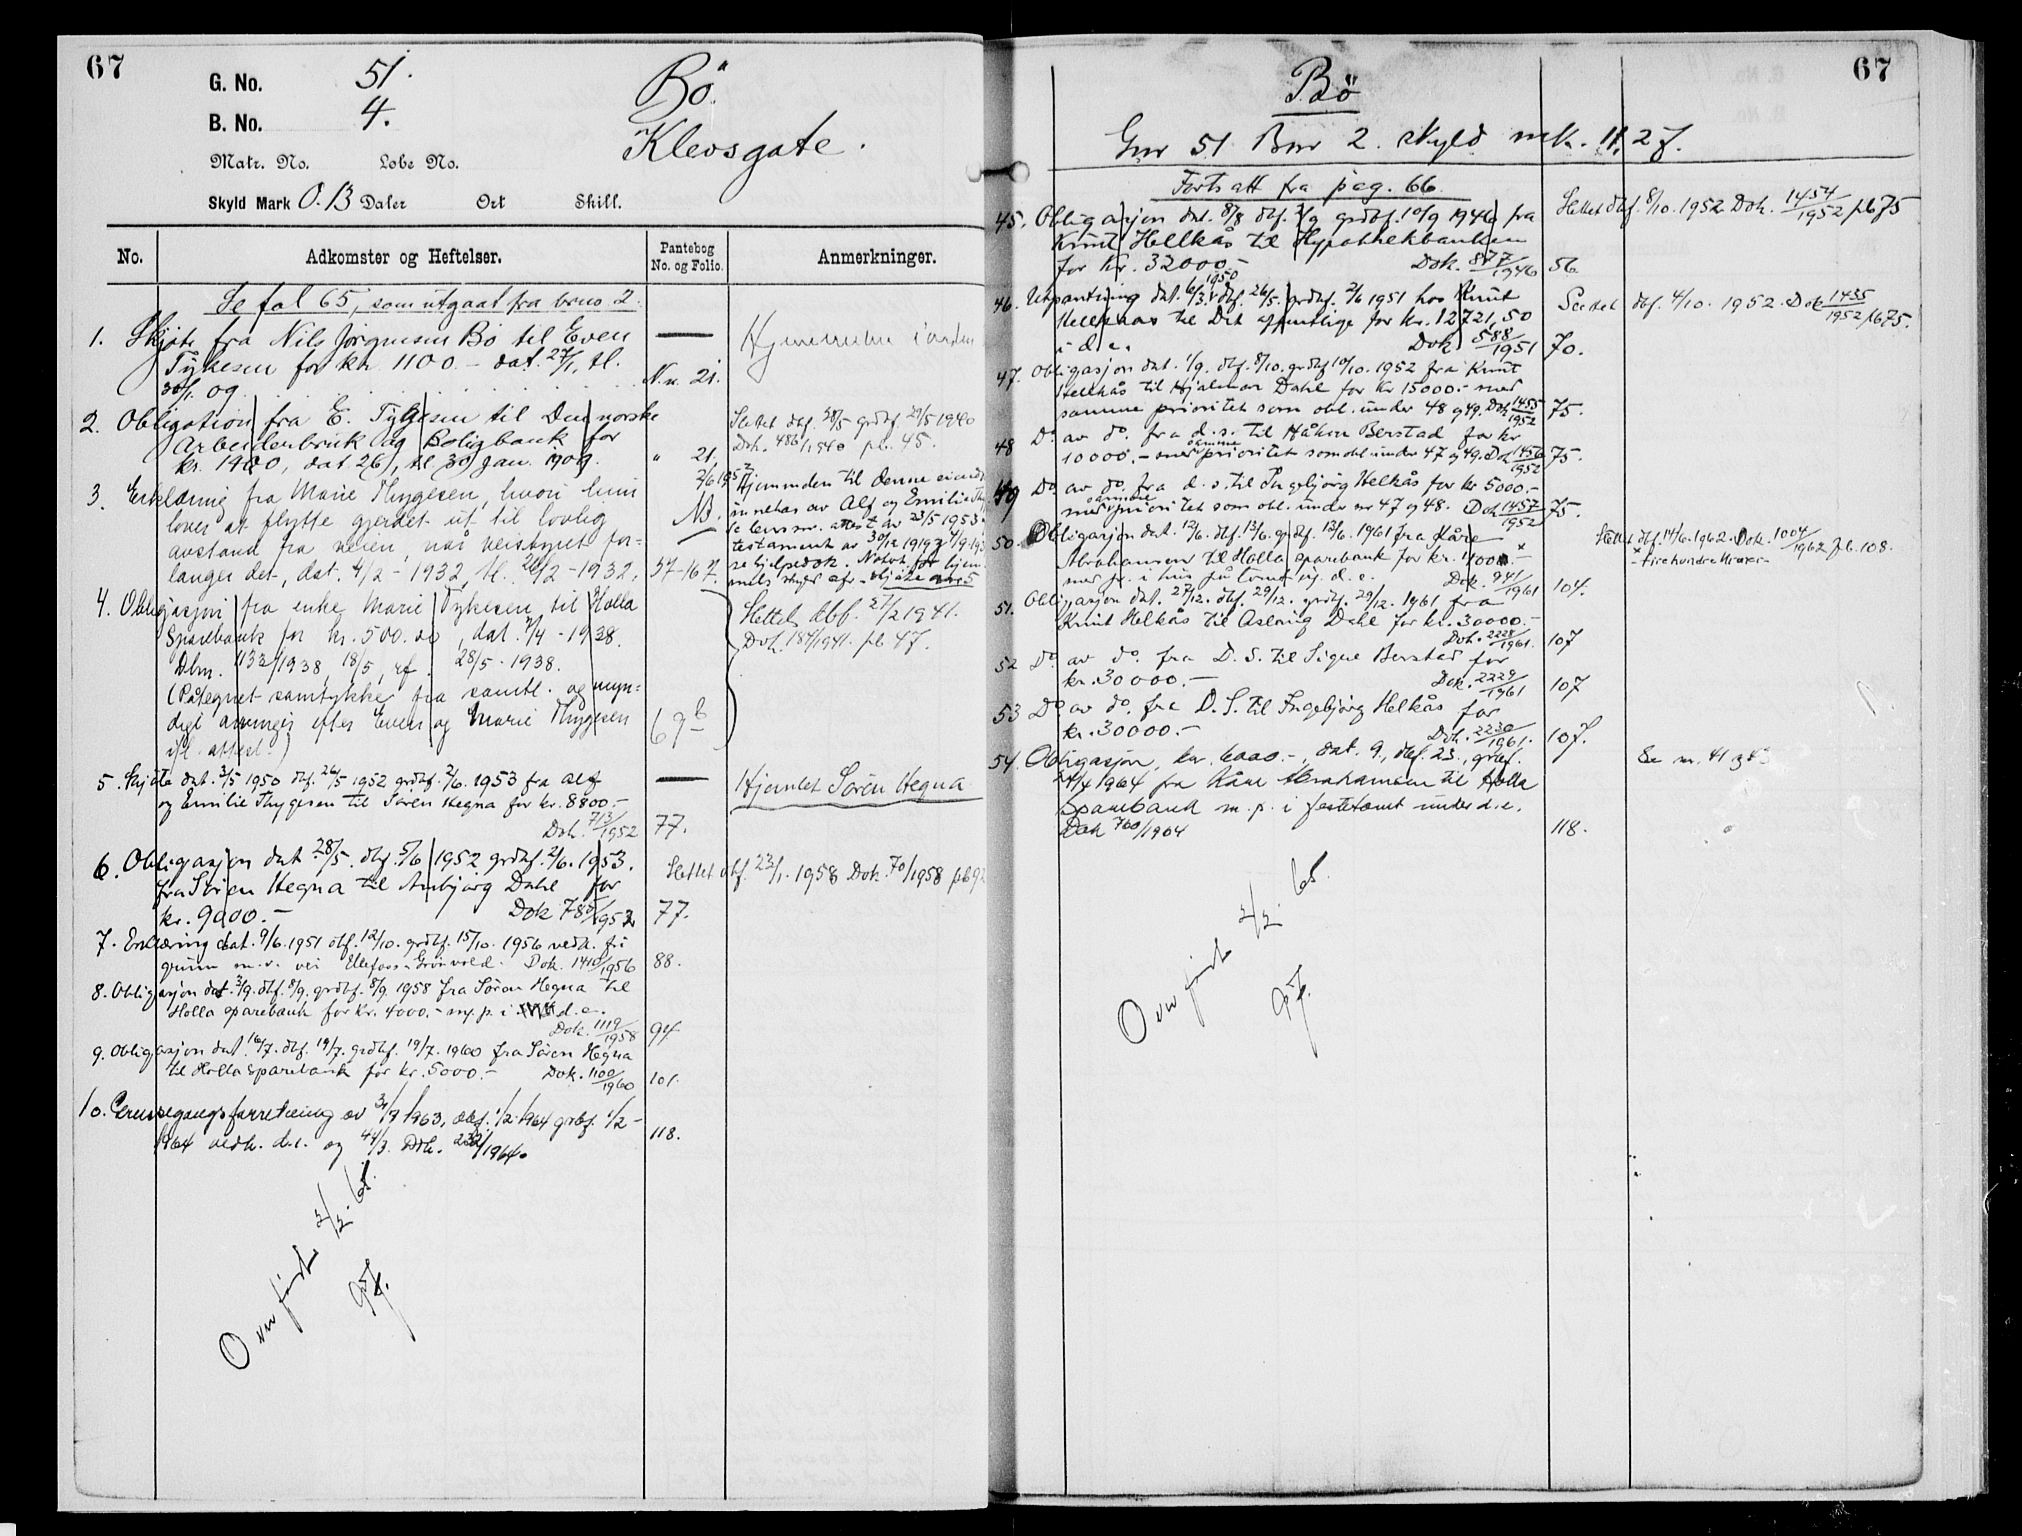 67
G. No. 51.
B. No. 4.
Matr. No. Løbe No.
Skyld Mark 0.13 Daler Ort Skill.
Bö.
Klevsgate.
No. Adkomster og Heftelser. Pantebog No. og Folio. Anmerkninger.
Se fol 65, som utgaat fra brno 2.
1. Skjöte fra Nils Jörgensen Bö til Even
Tykesen for kr. 1100.- dat. 27/1, tl.
30/1. 09 N.n. 21.
Hjemmelen i orden
2. Obligation fra E. Tykesen til Den norske
Arbeiderbruk og Boligbank for
kr. 1400, dat 26, tl. 30 Jan. 1909. " 21.
Slettet dbf. 28/5 grdbf. 29/5 1940
Dok. 486/1940 pb. 45.
3. Erklæring fra Marie Thygesen, hvori hun
lover at flytte gjerdet ut til lovlig
avstand fra veien, når veistyret for-
langer det, dat. 4/2 - 1932, tl. 20/2 - 1932. 57-167.
2/6 1953 Hjemmelen til denne eiend.
NB. innehas av Alf og Emilie Th
se lens nr. attest av 23/5 1953.
testament av 30/12 1919
se hjelpedok. Notat for hjem-
mels skyld afr. skjöte nr 5
4. Obligasjon fra enke Marie Tykesen til Holla
Sparebank for kr. 500.00, dat. 7/4 - 1938.
Dbn. 1132/1938, 18/5, rf. 28/5 - 1938.
(Påtegnet samtykke fra samtl. og myn-
dige arvinger efter Even og Marie Thygesen
ifl. attest.) 69 b
Slettet dbf. 27/2 1941.
Dok. 184/1941. pb 47.
5. Skjöte dat. 3/5 1950 dbf. 26/5 1952 grdbf. 2/6. 1953 fra Alf
og Emilie Thygesen til Sören Hegna for kr. 8800.-
Dok. 713/1952 77.
Hjemlet Sören Hegna.
6. Obligasjon dat. 28/5. dbf. 5/6 1952 grdbf. 2/6. 1953.
fra Sören Hegna til Anbjörg Dahl for
kr. 9000.- Dok 785/1952 77.
Slettet dbf. 23/1. 1958 Dok. 70/1958 pb 92
7. Erklæring dat. 9/6. 1951 dbf. 12/10. grdbf. 15/10. 1956 vedk. fri
grunn m.v. vei Ulefoss - Grönvold. Dok. 1410/1956 88.
8. Obligasjon dat. 3/9. dbf. 8/9. grdbf. 8/9 1958 fra Sören Hegna til
Holla sparebank for kr. 4000.- m.p. i d.e.
Dok. 1119/1958 94
9. Obligasjon dat. 16/7. dbf. 19/7. grdbf. 19/7. 1960 fra Sören Hegna
til Holla sparebank for kr. 5000.- Dok. 1100/1960 101.
10. Grensegangsforretning av 3/9 1963, dbf. 1/2 1964 grbf. 1/2 -
1964 vedk. d.e. og 44/3. Dok. 232/1964. 118.
Overfört 2/2. 65.
67
Bö
Gnr 51 Bnr 2. skyld mk. 11,27.
Forts att fra pag. 66.
45. Obligasjon dat. 8/8 dbf. 7/9 grdbf. 10/9 1946 fra
Knut Hellkås til Hypothekbanken
for kr. 32000.- Dok. 877/1946 56
Slettet dbf. 8/10. 1952 Dok. 1454/1952 pb 75
46. Utpantning dat. 6/3. 1950 dbf. 26/5. grdbf. 2/6 1951 hos Knut
Hellkås til Det offentlige for kr. 12721,50
i d.e. Dok. 588/1951 70.
Slettet dbf. 4/10. 1952. Dok 1435/1952 pb 75.
47. Obligasjon dat. 1/9. dbf. 8/10. grdbf 10/10. 1952 fra Knut
Hellkås til Hjalmar Dahl for kr 15000.- med
samme prioritet som obl. under 48 og 49. Dok 1455/1952 75.
48 Do. av do. fra d.s. til Håkon Berstad for kr
10000.- med samme prioritet som obl under 47 og 49. Dok 1456/1952 75.
49 Do. av do. fra d.s. til Ingebjörg Helkås for kr 5000.-
med samme prioritet som obl. under nr 47 og 48. Dok 1457/1952 75.
50. Obligasjon dat. 12/6. dbf. 13/6. grdbf. 13/6. 1961 fra Kåre
Abrahamsen til Holla sparebank for kr. 4000.-
med pr. i hus på tomt ig. d.e. Dok. 941/1961 104.
Slettet dbf. 14/6. 1962. Dok. 1004/1962 pb. 108.
x - firehundre kroner -
51. Obligasjon dat. 27/12. dbf. 29/12. grdbf. 29/12. 1961 fra
Knut Helkås til Aslaug Dahl for kr. 30000.-
Dok. 2228/1961. 107
52 Do. av do. fra D.S. til Signe Berstad for
kr. 30000.- Dok. 2229/1961 107
53 Do. av do. fra D.S. til Ingebjörg Helkås for
kr. 30000.- Dok. 2230/1961. 107.
54. Obligasjon, kr. 6000.-, dat. 9., dbf. 23., grbf.
24/4 1964 fra Kåre Abrahamsen til Holla
Sparebank m.p. i festetomt under d.e.
Dok 760/1964 118.
Se nr. 41 og 43
Overfört 2/2. 65.